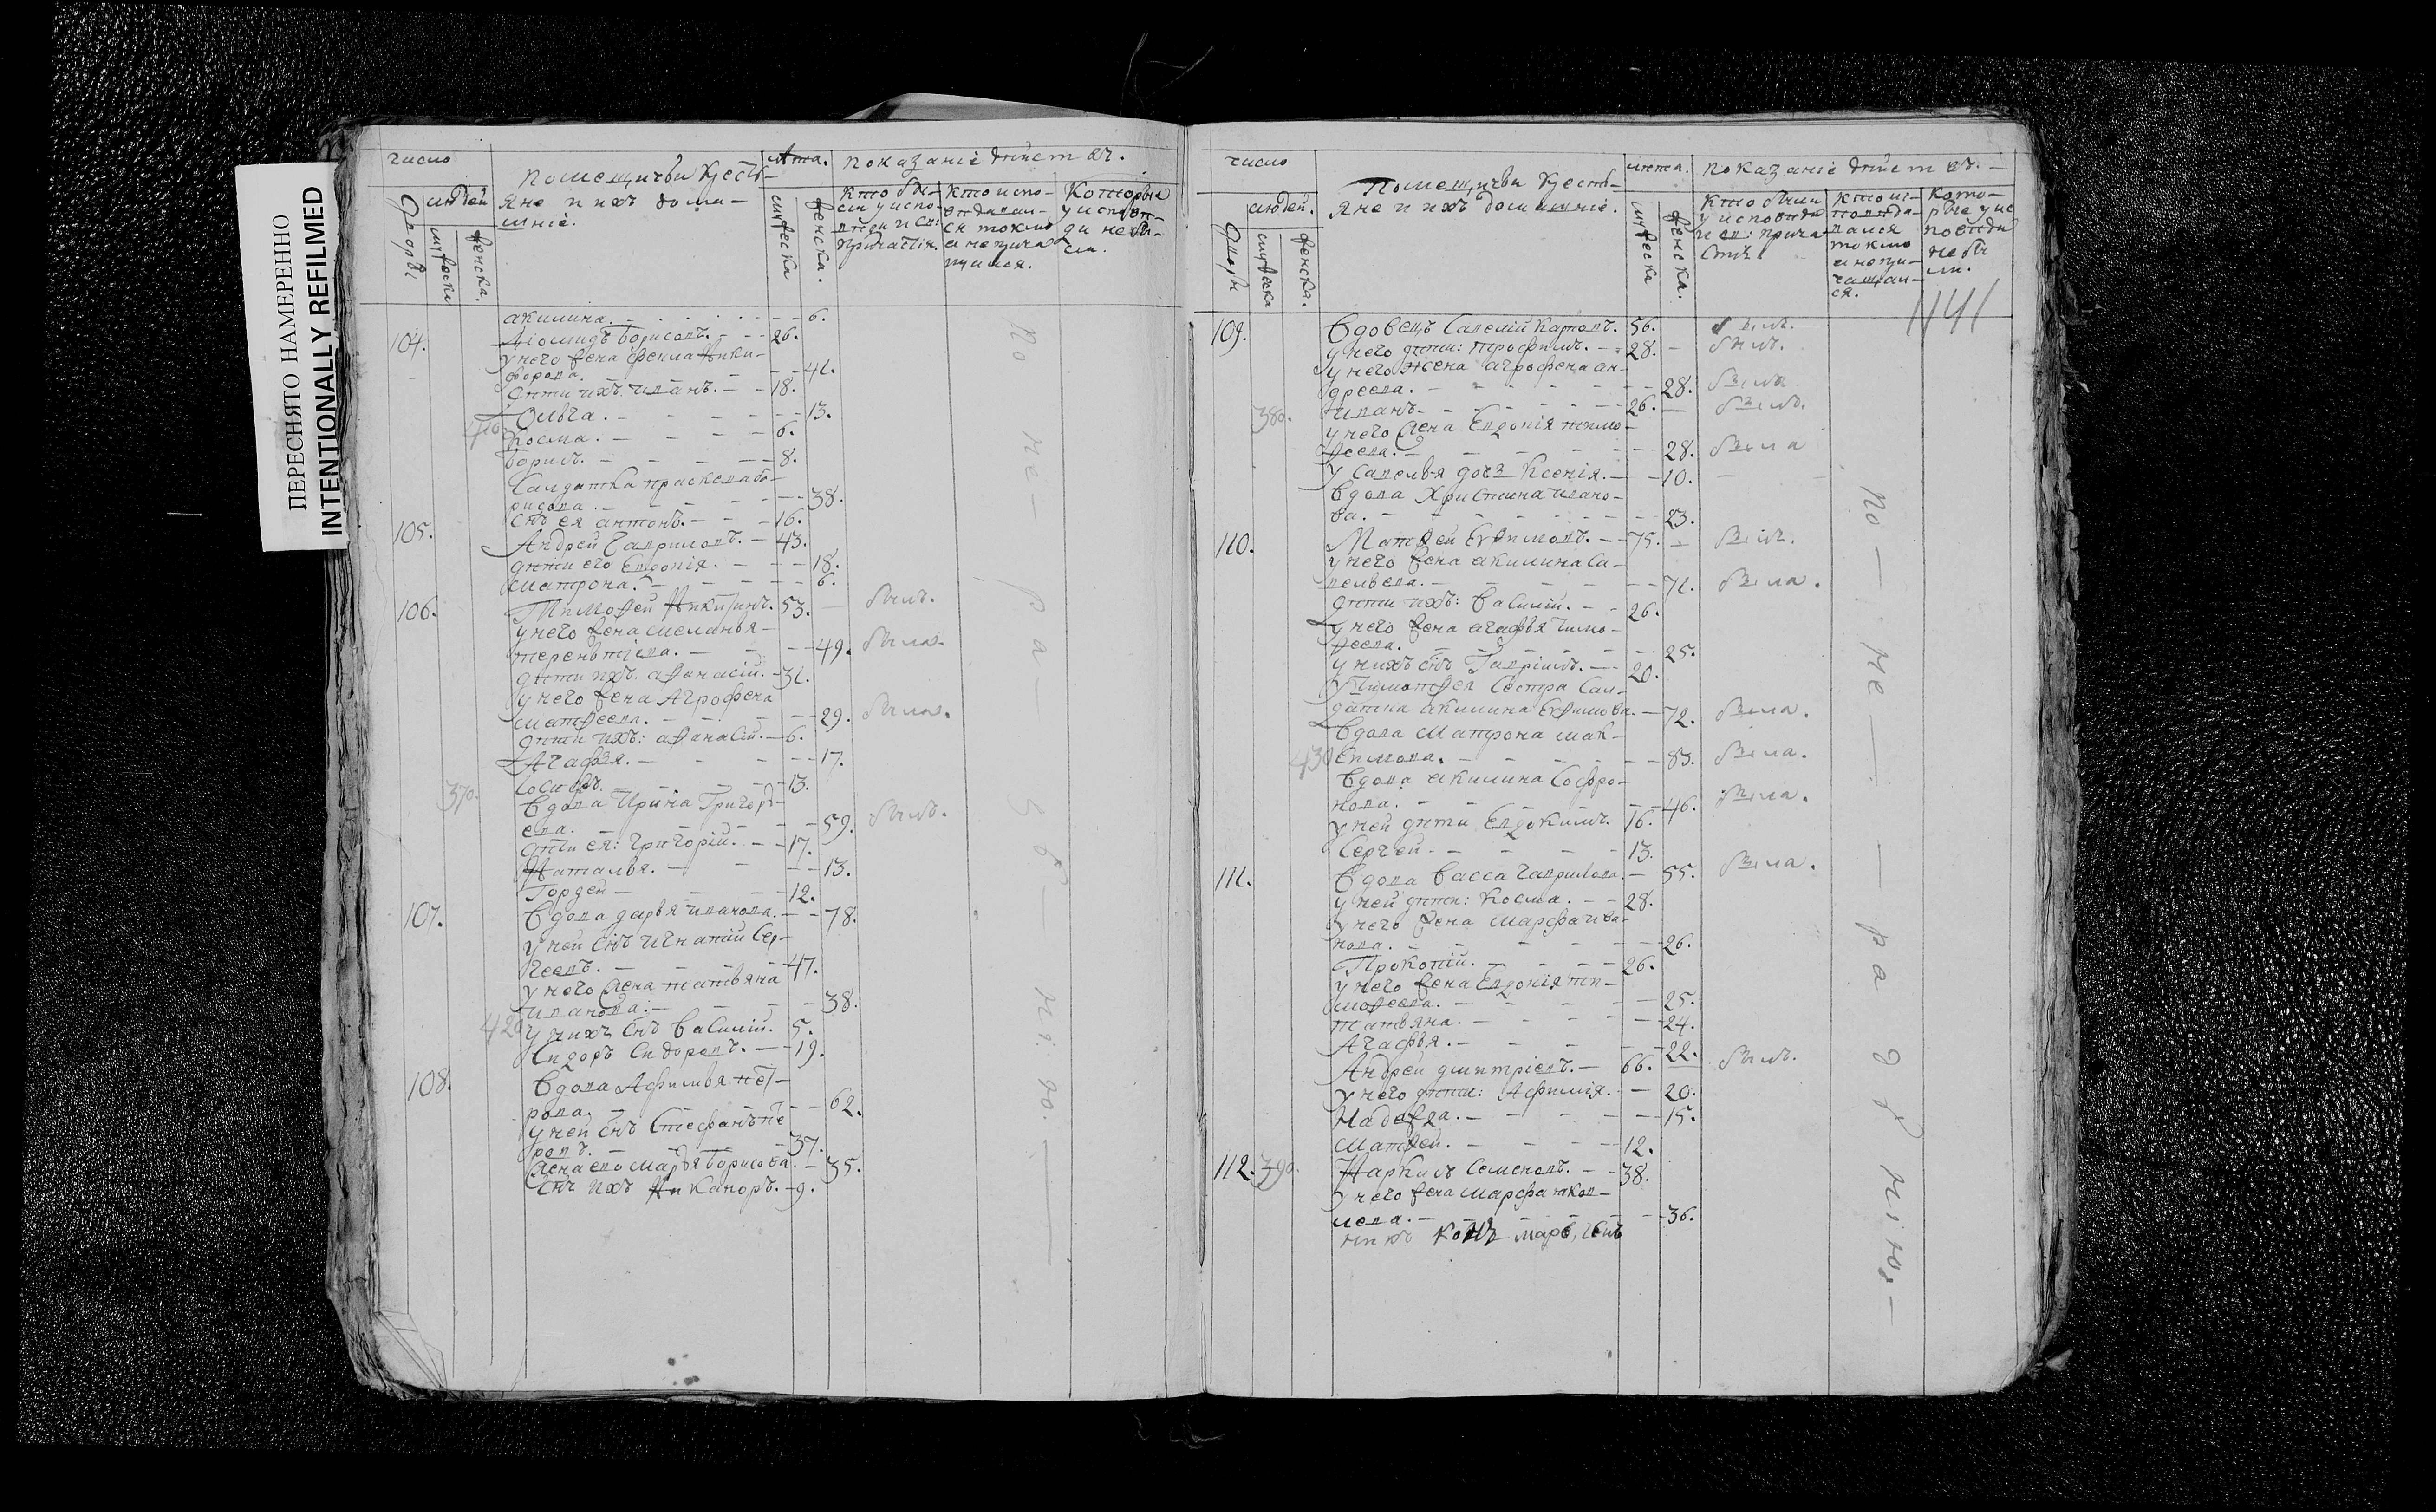 ПЕРЕСНЯТО НАМЕРЕННО
INTENTIONALLY REFILMED
число
людей
дворовъ
мужеска
женска.
Помещичьи кресть-
яне и ихъ дома-
шніе.
лѣта.
мужеска
женска.
показаніе действъ.
кто бы-
ли у испо-
вѣди и св:
причастія.
кто испо-
ведыван-
ся токмо
а не прича
щался.
Которые
у исповѣ-
ди не бы-
ли.
акилина. 6.
104. Діомидъ Борисовъ. 26.
у него жена Фекла Ники-
форова. 41.
дѣти ихъ Иванъ. 18.
Ольга. 13.
Косма. 6.
Борисъ. 8.
Салдатка праскева бо-
рисова. 38.
снъ ея антонъ. 16.
105. Андрей Гавриловъ. 43.
дѣти его Евдокія. 18.
матрона. 6.
106. Тимофей Никитинъ. 53. былъ.
у него жена меланья
терентьева. 49. была.
дѣти ихъ. афанасій. 31.
у него жена Агрофена
матвеева. 29. была.
дѣти ихъ: афанасій. 6.
Агафья. 17.
370. Іосифъ. 13.
Вдова Ирина Григорь-
ева. 59. былъ.
дѣти ея: григорій. 17.
Наталья. 13.
Гордей 12.
107. Вдова дарья иванова. 78.
у ней снъ игнатій Сер-
геевъ. 47.
у него жена татьяна
иванова. 38.
420 у нихъ снъ василій. 5.
Сидоръ Сидоровъ. 19.
108. Вдова Афимья пет-
рова. 62.
у ней снъ Стефанъ пе
ровъ. 37.
жена его марья борисова. 35.
снъ ихъ Никаноръ. 9.
число
людей.
мужеска
женска.
Помещичьи кресть-
яне и ихъ домашніе.
лѣта.
мужеска
женска.
показаніе действъ.
кто были
у исповѣди
и св: прича-
стія
кто ис-
поведа-
вался
токмо
а не при-
чащал-
ся.
Кото-
рые у ис
поведи
не бы
ли.
1141
109. Вдовецъ Савелій Карповъ. 56. былъ.
у него дѣти: трофимъ. 28. былъ.
у него жена агрофена ан-
дреева. 28. была
380. Иванъ. 26. былъ.
у него жена Евдокія тимо-
феева. 28. была
у Савелья дочь Ксенія. 10.
Вдова Христина ивано-
ва. 23.
110. Матвей Ефимовъ. 75. былъ.
у него жена акилина са-
вельева. 71. была.
дѣти ихъ: василій. 26.
у него жена агафья тимо-
феева. 25.
у нихъ снъ Гавріилъ. 20.
датка акилина Ефимова. 72. была.
Вдова Матрона мак-
430 симова. 83. была.
Вдова акилина Софро-
нова. 46. была.
у ней дѣти Евдокимъ. 16.
Сергей. 13.
111. Вдова васса гаврилова. 55. была.
у ней дѣти: Косма. 28.
у него жена марфа ива-
нова. 26.
Прокопій. 26.
у него жена Евдокія ти-
мофеева. 25.
татьяна. 24.
Агафья. 22.
Андрей дмитріевъ. 66. былъ.
у него дѣти: Афимія. 20.
Надежда. 15.
Матвей. 12.
112. 390. Наркисъ Семеновъ. 38.
у него жена марфа яков-
лева. 36.